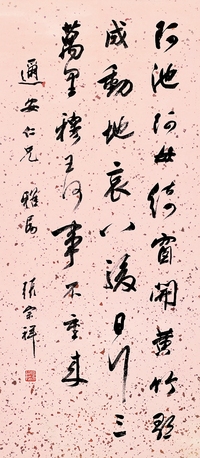 池阿母綺窗開黃竹歌
成動地哀八駿日行三
萬里穆王何事不重来
通安仁兄 雅屬 張宗祥